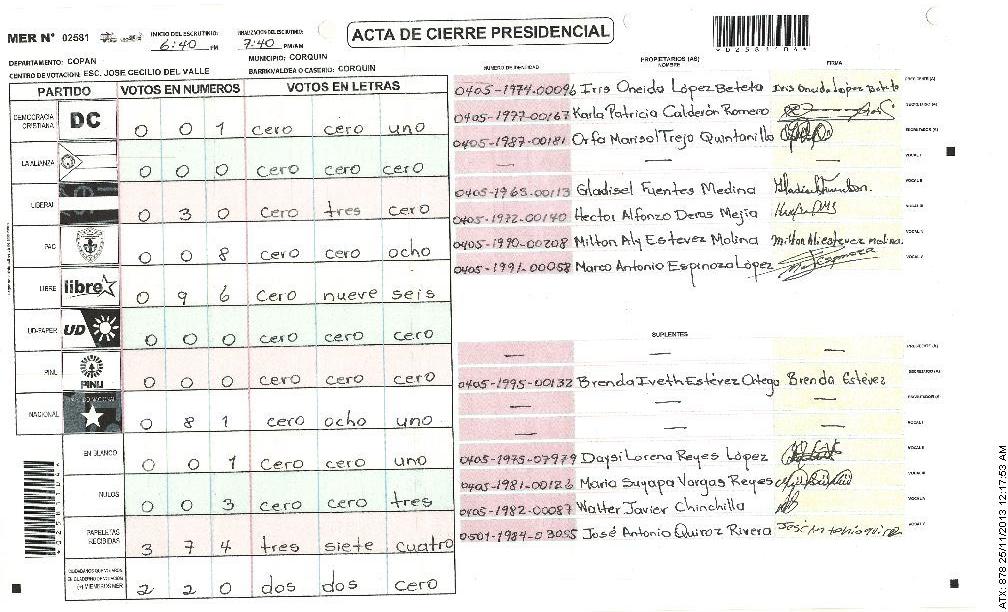 ACTA DE CIERRE PRESIDENCIAL
MER N° 02581
INICIO DEL ESCRUTINIO: 6:40 PM
FINALIZACION DEL ESCRUTINIO: 7:40 PM/AM
*02581104*
DEPARTAMENTO: COPAN
MUNICIPIO: CORQUIN
CENTRO DE VOTACION: ESC. JOSE CECILIO DEL VALLE
BARRIO/ALDEA O CASERIO: CORQUIN
PARTIDO VOTOS EN NUMEROS VOTOS EN LETRAS
DEMOCRACIA CRISTIANA DC 0 0 1 cero cero uno
LA ALIANZA 0 0 0 cero cero cero
LIBERAL 0 3 0 cero tres cero
PAC 0 0 8 cero cero ocho
LIBRE libre 0 9 6 cero nueve seis
UD-FAPER UD 0 0 0 cero cero cero
PINU PINU 0 0 0 cero cero cero
NACIONAL 0 8 1 cero ocho uno
EN BLANCO 0 0 1 cero cero uno
NULOS 0 0 3 cero cero tres
PAPELETAS RECIBIDAS 3 7 4 tres siete cuatro
CIUDADANOS QUE VOTARON EN CUADERNO DE VOTACION (+) MIEMBROS MER 2 2 0 dos dos cero
PROPIETARIOS (AS)
NUMERO DE IDENTIDAD NOMBRE FIRMA
0405-1974-00096 Iris Oneida López Beteta Iris Oneida López Beteta PRESIDENTE (A)
0405-1977-00167 Karla Patricia Calderón Romero SECRETARIO (A)
0405-1987-00181 Orfa Marisol Trejo Quintanilla ESCRUTADOR (A)
— — — VOCAL I
0405-1965-00113 Gladisel Fuentes Medina VOCAL II
0405-1972-00140 Hector Alfonzo Deras Mejía VOCAL III
0405-1990-00208 Milton Aly Estevez Molina Milton Ali estevez molina. VOCAL IV
0405-1991-00058 Marco Antonio Espinoza López VOCAL V
SUPLENTES
— — — PRESIDENTE (A)
0405-1995-00132 Brenda Iveth Estévez Ortega Brenda Estévez SECRETARIO (A)
— — — ESCRUTADOR (A)
— — — VOCAL I
0405-1975-07979 Daysi Lorena Reyes López VOCAL II
0405-1981-00126 Maria Suyapa Vargas Reyes VOCAL III
0405-1982-00087 Walter Javier Chinchilla VOCAL IV
0501-1984-03095 José Antonio Quiroz Rivera VOCAL V
*02581104*
ATX: 878 25/11/2013 12:17:53 AM